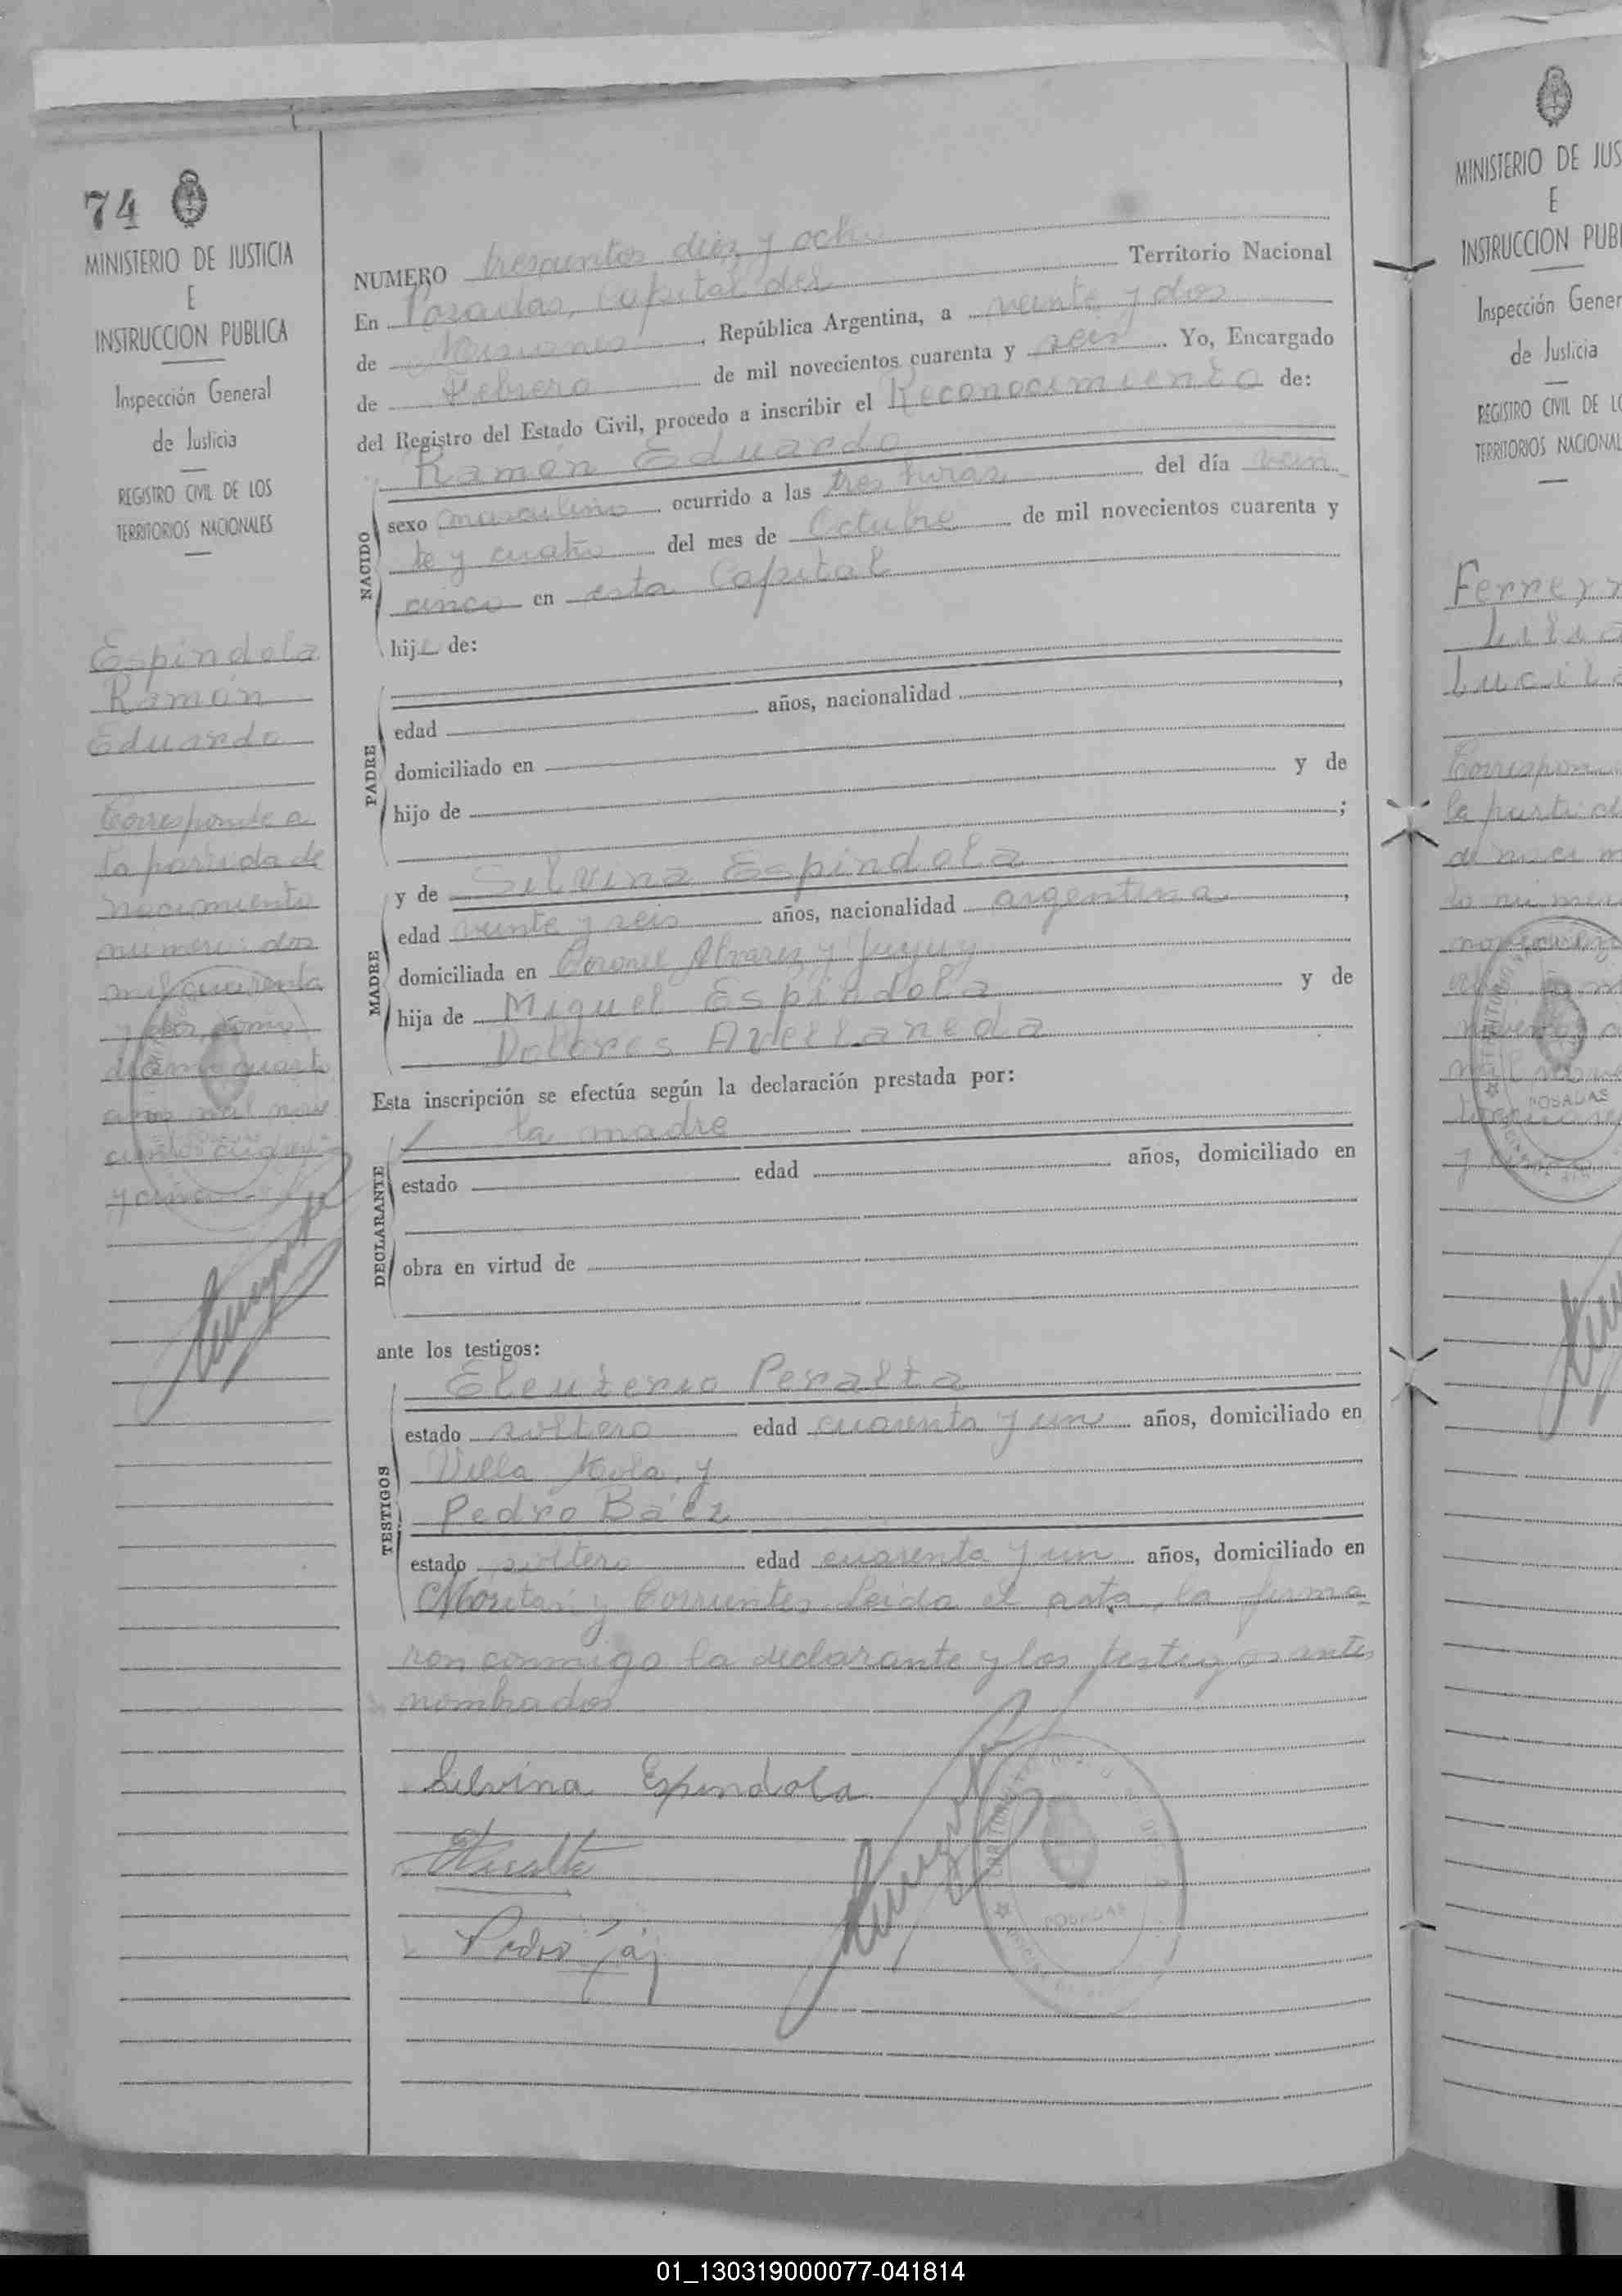 74
MINISTERIO DE JUSTICIA
E
INSTRUCCION PUBLICA
Inspección General
de Justicia
REGISTRO CIVIL DE LOS
TERRITORIOS NACIONALES
Espíndola
Ramón
Eduardo
Corresponde a
la partida de
nacimiento
número: dos
mil cuarenta
y dos, tomo
décimo cuarto
año mil nove
cientos cuaren-
y cinco
NUMERO trescientos diez y ocho
En Posadas, Capital del Territorio Nacional
de Misiones, República Argentina, a veinte y dos
de Febrero de mil novecientos cuarenta y seis. Yo, Encargado
del Registro del Estado Civil, procedo a inscribir el Reconocimiento de:
Ramón Eduardo
NACIDO
sexo masculino ocurrido a las tres horas del día vein
te y cuatro del mes de Octubre de mil novecientos cuarenta y
cinco en esta Capital
hijo de:
PADRE
edad años, nacionalidad ,
domiciliado en
hijo de y de
;
MADRE
y de Silvina Espíndola
edad veinte y seis años, nacionalidad argentina,
domiciliada en Coronel Alvarez y Jujuy
hija de Miguel Espíndola y de
Dolores Avellaneda
Esta inscripción se efectúa según la declaración prestada por:
DECLARANTE
la madre
estado edad años, domiciliado en
obra en virtud de
ante los testigos:
TESTIGOS
Eleuterio Peralta
estado soltero edad cuarenta y un años, domiciliado en
Villa Mola, y
Pedro Báez
estado soltero edad cuarenta y un años, domiciliado en
y Corrientes. Leida el acta, la firma-
ron conmigo la declarante y los testigos antes
nombrados
Silvina Espindola
Pedro
POSADAS
MINISTERIO DE JUS
E
INSTRUCCION PUBL
Inspección Gener
de Justicia
REGISTRO CIVIL DE LO
TERRITORIOS NACIONAL
Ferreyr
Luci
Correspon
la partid
de naci
to númer
POSADAS
01_130319000077-041814